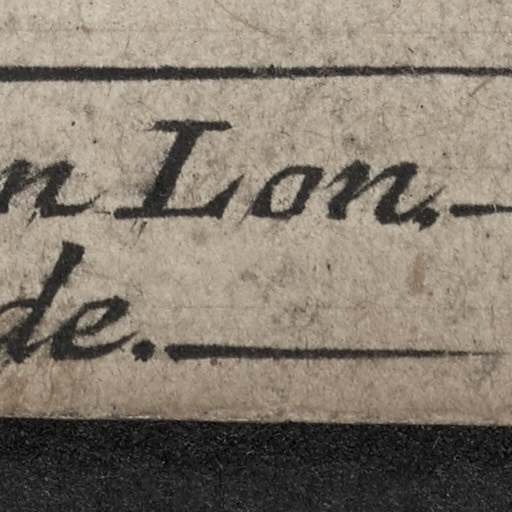 n Lon.—
de.—